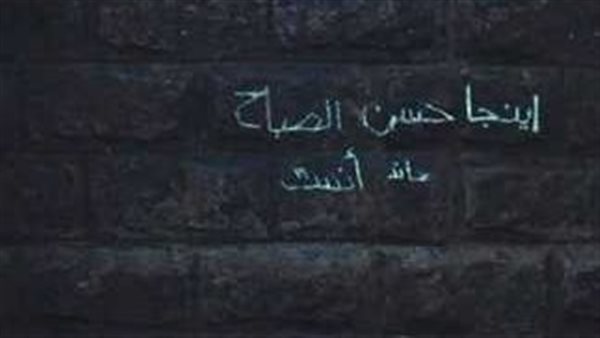 اينجا حسن الصباح
أنست